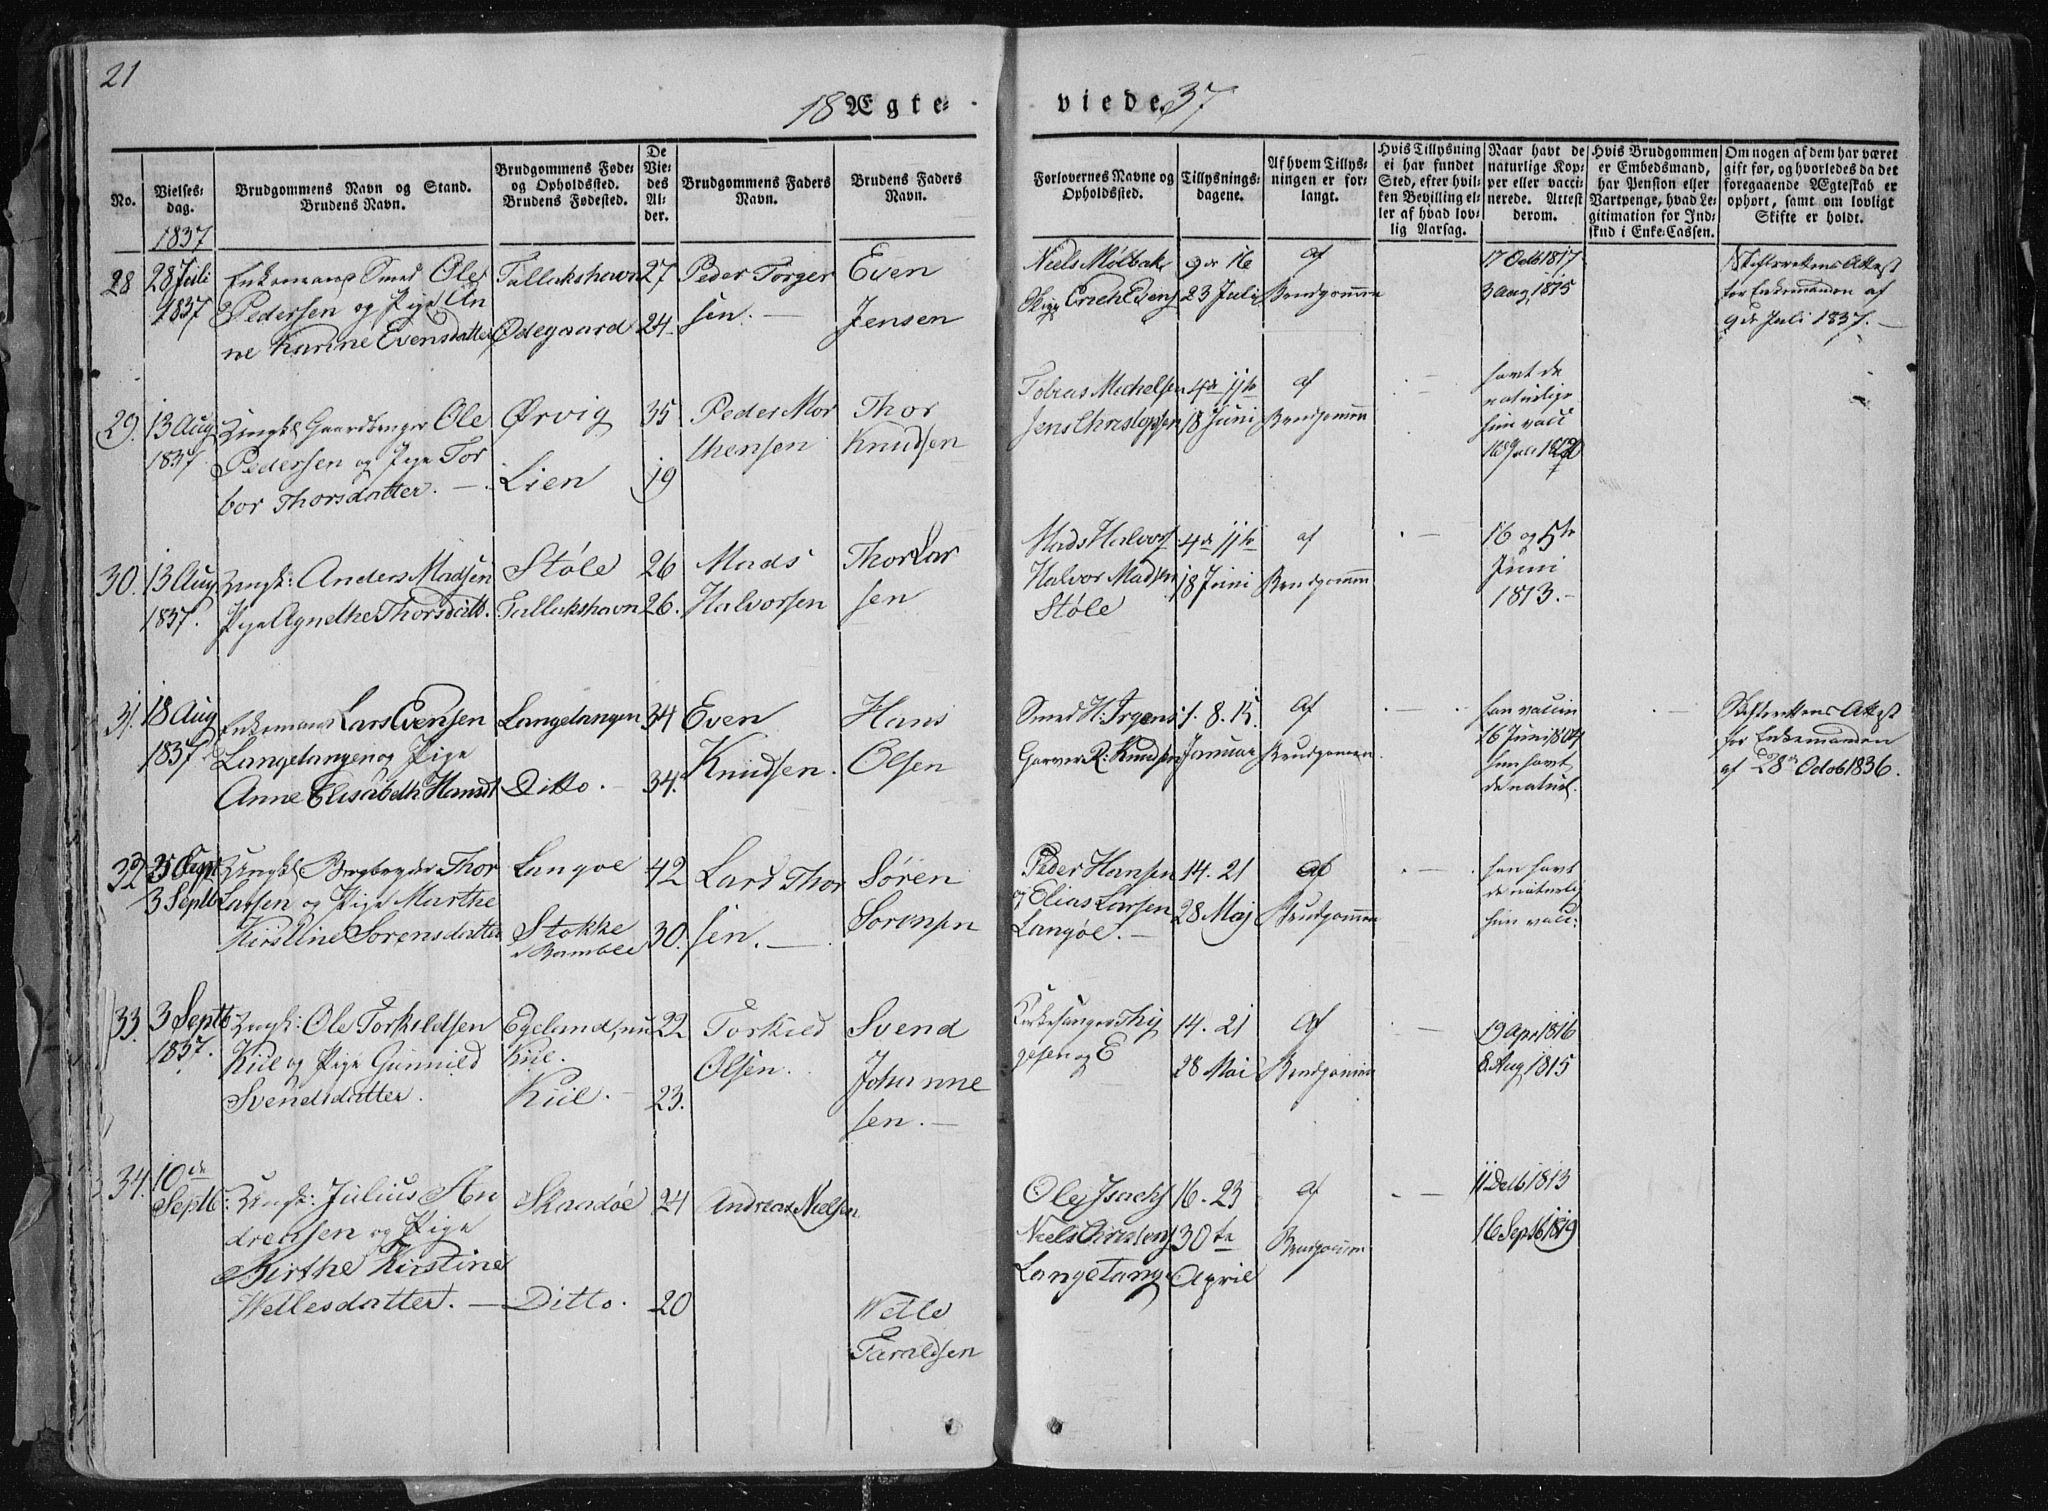 21
18 Ægte-
viede. 37
No.
Vielses-dag.
1837
Brudgommens Navn og Stand.
Brudens Navn.
Brudgommens Føde-
og Opholdssted.
Brudens Fødested.
De
Vie-
des
Al-
der.
Brudgommens Faders
Navn.
Brudens Faders
Navn.
Forlovernes Navne og
Opholdssted.
Tillysnings-
dagene.
Af hvem Tillys-
ningen er for-
langt.
Hvis Tillysning
ei har fundet
Sted, efter hvil-
ken Bevilling el-
ler af hvad lov-
lig Aarsag.
Naar havt de
naturlige Kop-
per eller vacci-
nerede. Attest
derom.
Hvis Brudgommen
er Embedsmand,
har Pension eller
Vartpenge, hvad Le-
gitimation for Ind-
skud i Enke-Cassen.
Om nogen af dem har været
gift før, og hvorledes da det
foregaaende Ægteskab er
ophørt, samt om lovligt
Skifte er holdt.
28
28 Juli
1837
Enkemand Smed Ole
Pedersen og Pige An
ne Karine Evensdatter
Tallakshavn
Ødegaard
27
24.
Peder Torger
sen. —
Even
Jensen
Niels Mølbak
Erich Evens
9de 16
23 Juli
af
Brudgommen
17 Octb 1817
3 Aug 1815
Skifterettens Attest
for Enkemanden af
9de Juli 1837. —
29.
13 Aug
1837
Ungk Gaardbruger Ole
Pedersen og Pige Tor
bor Thorsdatter. —
Ørvig
Lien
35
19
Peder Mor
thensen
Thor
Knudsen
Tobias Michelsen
Jens Christophersen
4de 11te
18 Juni
af
Brudgomen
havt de
naturlige
hun vacc
30.
13 Aug
1837.
Ungk: Anders Madsen
Pige Agnethe Thorsdatt.
Støle
Tallakshavn
26
26.
Mads
Halvorsen
Thor Lar
sen
Mads Halvors
Halvor Madsen
Støle
4de 11te
18 Juni
af
Brudgommen
16 og 5te
Juni
1813. -
31.
18 Aug
1837
Enkemand Lars Evensen
Langetangen og Pige
Anne Elisabeth Hansdt
Langetangen
Ditto. —
34
34.
Even
Knudsen.
Hans
Olsen
Smed H: Irgens
Garver R: Knudsen
1. 8. 15.
Januar
Af
Brudgomen
han vaccin
16 Juni 1804
hun havt
de naturl.
Skifterettens Attest
for Enkemanden
af 28de Octob 1836.
32
3 Septb
Ungk Thor
Larsen og Pige Marthe
Kirstine Sørensdatter
Langøe
Stokke
i Bamble
42
30.
Lars Thor
sen. —
Søren
Sørensen
Peder Hansen
og Elias Larsen
Langøe. —
14. 21
28 Maj
af
Brudgommen
han havt
de naturlig
hun vacc.
33.
3 Septb
1837.
Ungk: Ole Torkildsen
Kiil og Pige Gunnild
Svendsdatter.
Egeland, nu
Kiil.
Kiil. —
22
23.
Torkild
Olsen.
Svend
Johanne
sen. —
Kirkesanger Thy
gesen og E
14. 21
28 Mai
Af
Brudgommen
19 Apr 1816
8. Aug 1815
34.
10de
Septb:
Ungk: Julius An
dreasen og Pige
Birthe Kirstine
Wetlesdatter. —
Skaadøe
Ditto.
24
20
Andreas Nielsen
Wetle
Taraldsen
Ole Isachs
Niels Christens
LangeTang
16. 23
30te
April
af
Brudgommen
11 Decb 1813
16 Septb 1819